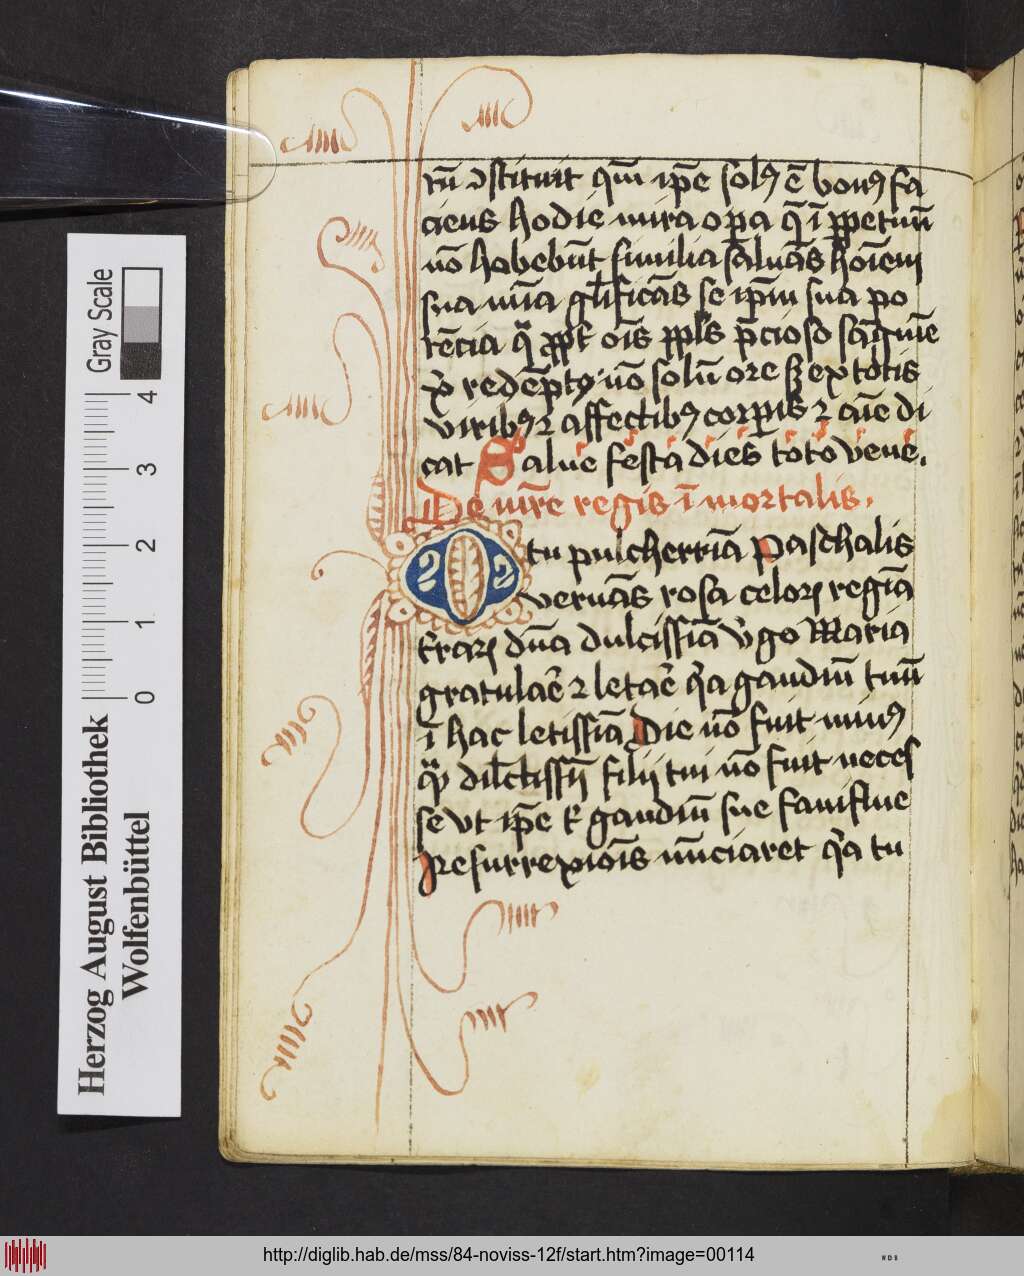 tū ↄstituit qm̄ ip̄e solꝰ ē bonꝰ fa
ciens hodie mira op̄a q̄ ī ꝑpetuū
nō habebūt similia saluās hoīem
sua mīa gl̄ificās se ip̄m sua po
tēcia q̄ ꝓpt̄ oīs ppl̄s p̄cioso sāguīe
xp̄i redēptꝰ nō solū ore sꝫ ex totis
viribꝰ ⁊ affectibꝰ corꝑis ⁊ aīe di
cat Salue festa dies toto vene.
De mr̄e regis īmortalis.
O tu pulcherria Paschalis
vernās rosa celoꝝ regīa
t̄raꝝ dn̄a dulcissīa v̄go Maria
gratulaē ⁊ letaē qͥa gaudiū tuū
ī hac letissīa die nō fuit minꝰ
qͣꝫ dil̄ctissī filij tui nō fuit neces
se vt ip̄e t̄ gaudiū sue saniflue
Resurrexiōis nūciaret qͥa tu
Herzog August Bibliothek
Wolfenbüttel
Gray Scale
0 1 2 3 4
http://diglib.hab.de/mss/84-noviss-12f/start.htm?image=00114